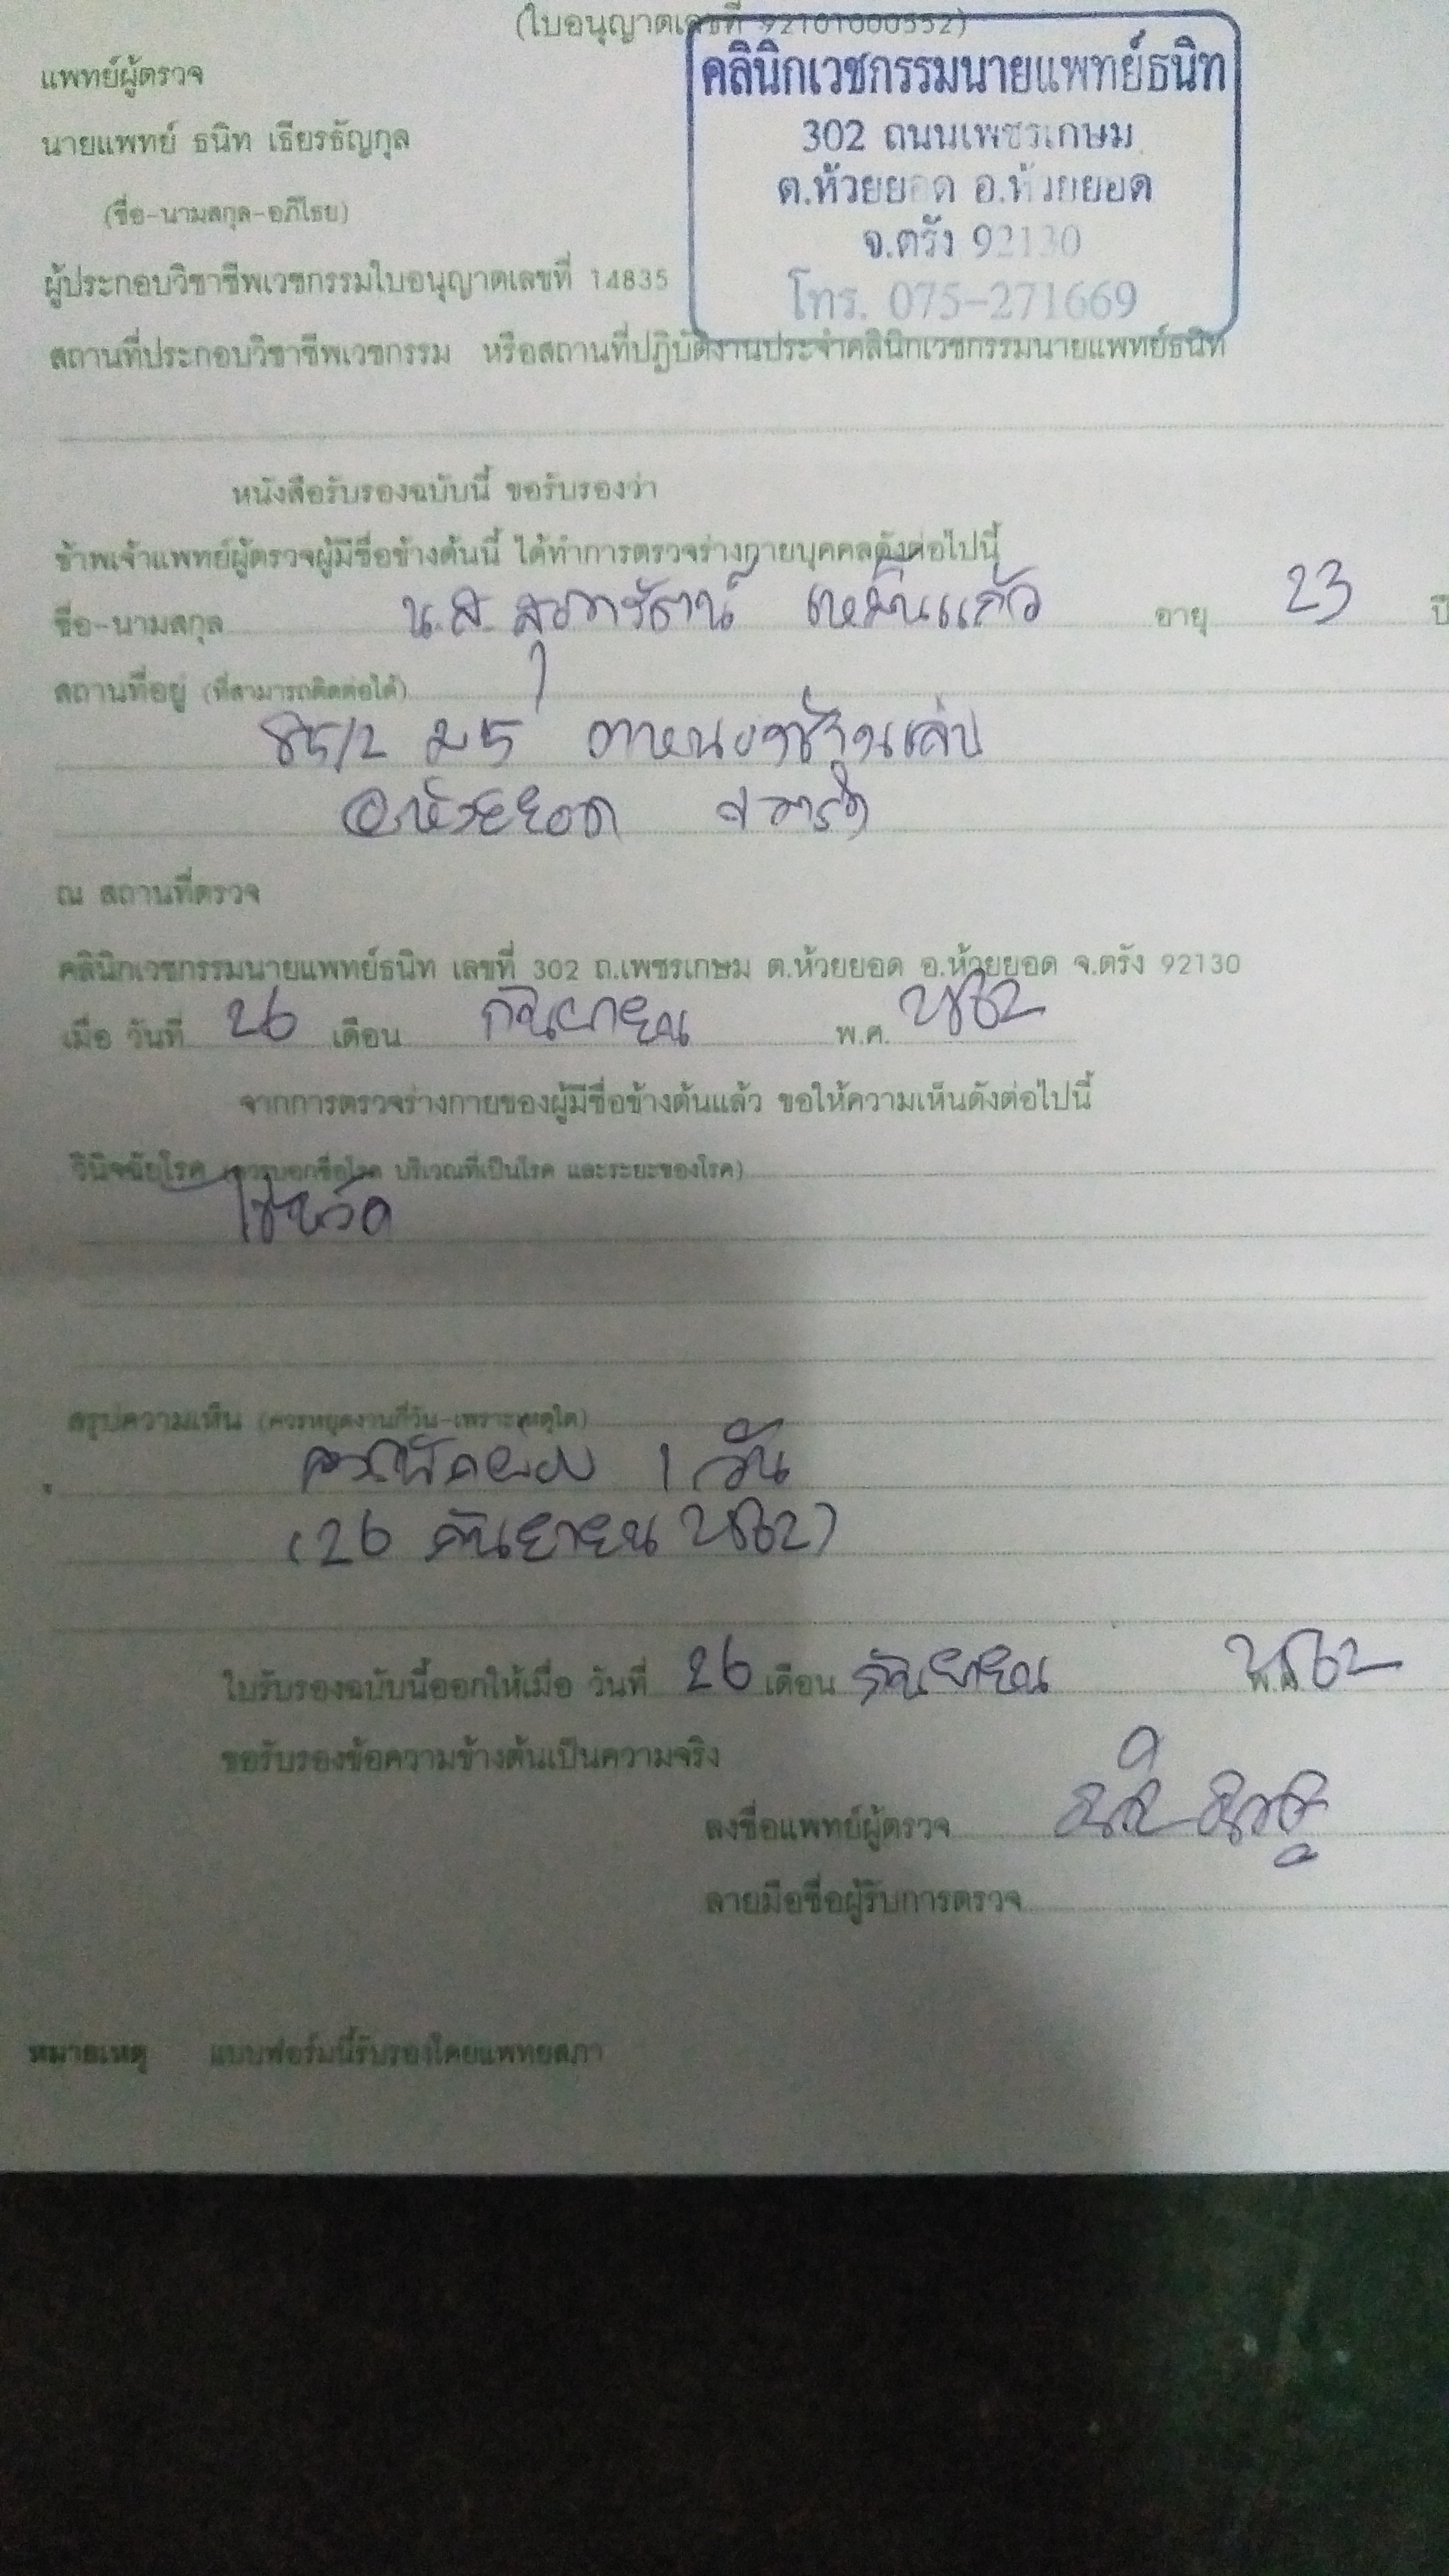 (ใบอนุญาตเลขที่ 92101000552)
คลินิกเวชกรรมนายแพทย์ธนิท
302 ถนนเพชรเกษม
ต.ห้วยยอด อ.ห้วยยอด
จ.ตรัง 92130
โทร. 075-271669
แพทย์ผู้ตรวจ
นายแพทย์ ธนิท เธียรธัญกุล
(ชื่อ-นามสกุล-อภิไธย)
ผู้ประกอบวิชาชีพเวชกรรมใบอนุญาตเลขที่ 14835
สถานที่ประกอบวิชาชีพเวชกรรม หรือสถานที่ปฏิบัติงานประจำคลินิกเวชกรรมนายแพทย์ธนิท
หนังสือรับรองฉบับนี้ ขอรับรองว่า
ข้าพเจ้าแพทย์ผู้ตรวจผู้มีชื่อข้างต้นนี้ ได้ทำการตรวจร่างกายบุคคลดังต่อไปนี้
ชื่อ-นามสกุล น.ส. สุดารัตน์ อายุ 23 ปี
สถานที่อยู่ (ที่สามารถติดต่อได้)
85/2 ม5
อ.ห้วยยอด จ.ตรัง
ณ สถานที่ตรวจ
คลินิกเวชกรรมนายแพทย์ธนิท เลขที่ 302 ถ.เพชรเกษม ต.ห้วยยอด อ.ห้วยยอด จ.ตรัง 92130
เมื่อ วันที่ 26 เดือน กันยายน พ.ศ. 2562
จากการตรวจร่างกายของผู้มีชื่อข้างต้นแล้ว ขอให้ความเห็นดังต่อไปนี้
วินิจฉัยโรค (ควรบอกชื่อโรค บริเวณที่เป็นโรค และระยะของโรค)
ไข้หวัด
สรุปความเห็น (ควรหยุดงานกี่วัน-เพราะเหตุใด)
ควรพักผ่อน 1 วัน
(26 กันยายน 2562)
ใบรับรองฉบับนี้ออกให้เมื่อ วันที่ 26 เดือน กันยายน พ.ศ. 2562
ขอรับรองข้อความข้างต้นเป็นความจริง
ลงชื่อแพทย์ผู้ตรวจ
ลายมือชื่อผู้รับการตรวจ
หมายเหตุ แบบฟอร์มนี้รับรองโดยแพทยสภา